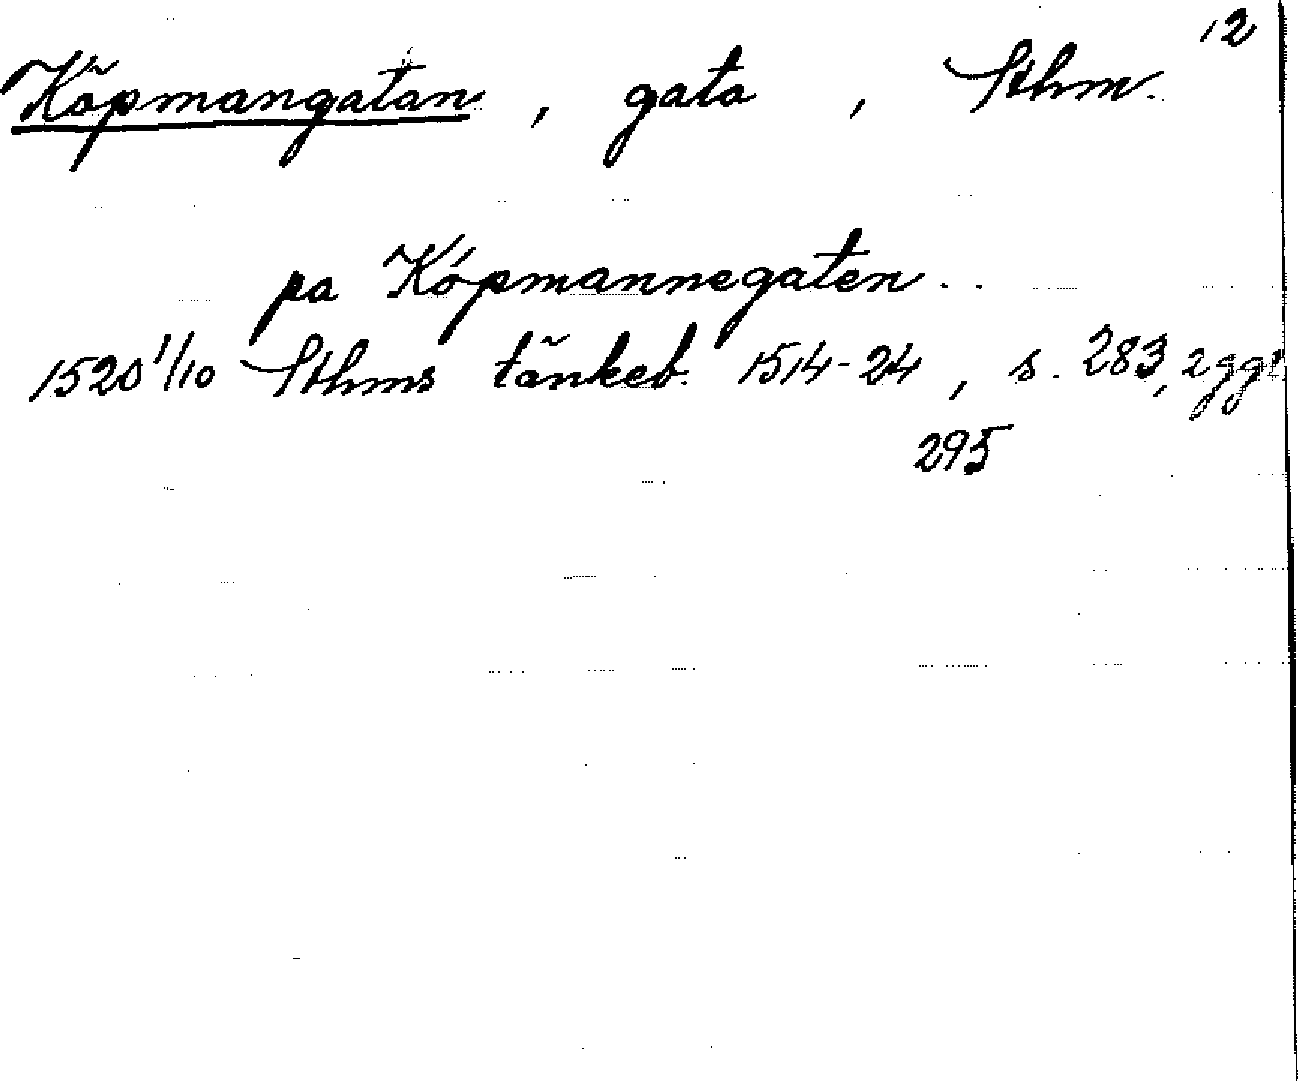 12
Köpmangatan, gata, Sthm.
pa Kópmannegaten..
1520 1/10 Sthms tänkeb. 1514-24, s. 283, 2 ggr.
295